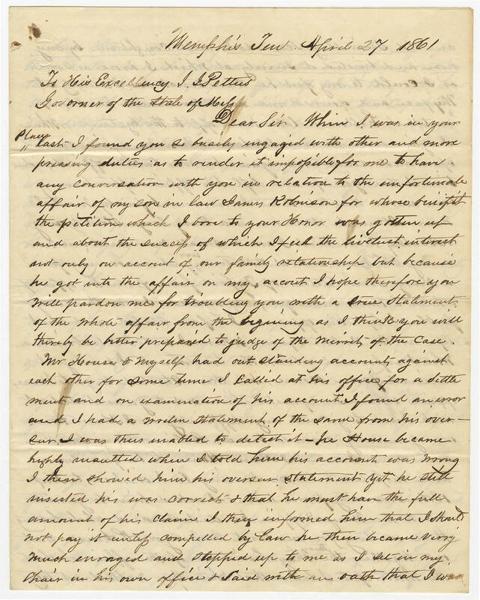 Memphis Ten April 27 1861
To His Excellency J. J Pettus
Governor of the State of Miss
Dear Sir When I was in your
Place
last I found you so busily engaged with other and more
pressing duties as to render it impossible for me to have
any conversation with you in relation to the unfortunate
affair of my son in law James Robinson for whose benefit
the petition which I bore to your Honor was gotten up
and about the success of which I feel the liveliest interest
not only on account of our family relationship but because
he got into the affair on my account I hope therefore you
will pardon me for troubling you with a true Statement
of the whole affair from the begining as I think you will
thereby be better prepared to judge of the merrits of the Case.
Mr House & myself had out standing accounts against
each other for some time I called at his office for a settle
ment and on examination of his account I found an error
and I had a writen statement of the same from his over-
seer I was thus enabled to detect it — he House became
highly insulted when I told him his account was wrong
I then showed him his overseer statement yet he still
insisted his was correct & that he must have the full
amount of his claim I then informed him that I should
not pay it unless compelled by law he then became very
much enraged and stepped up to me as I set in my
Chair in his own office & said with an oath that I was